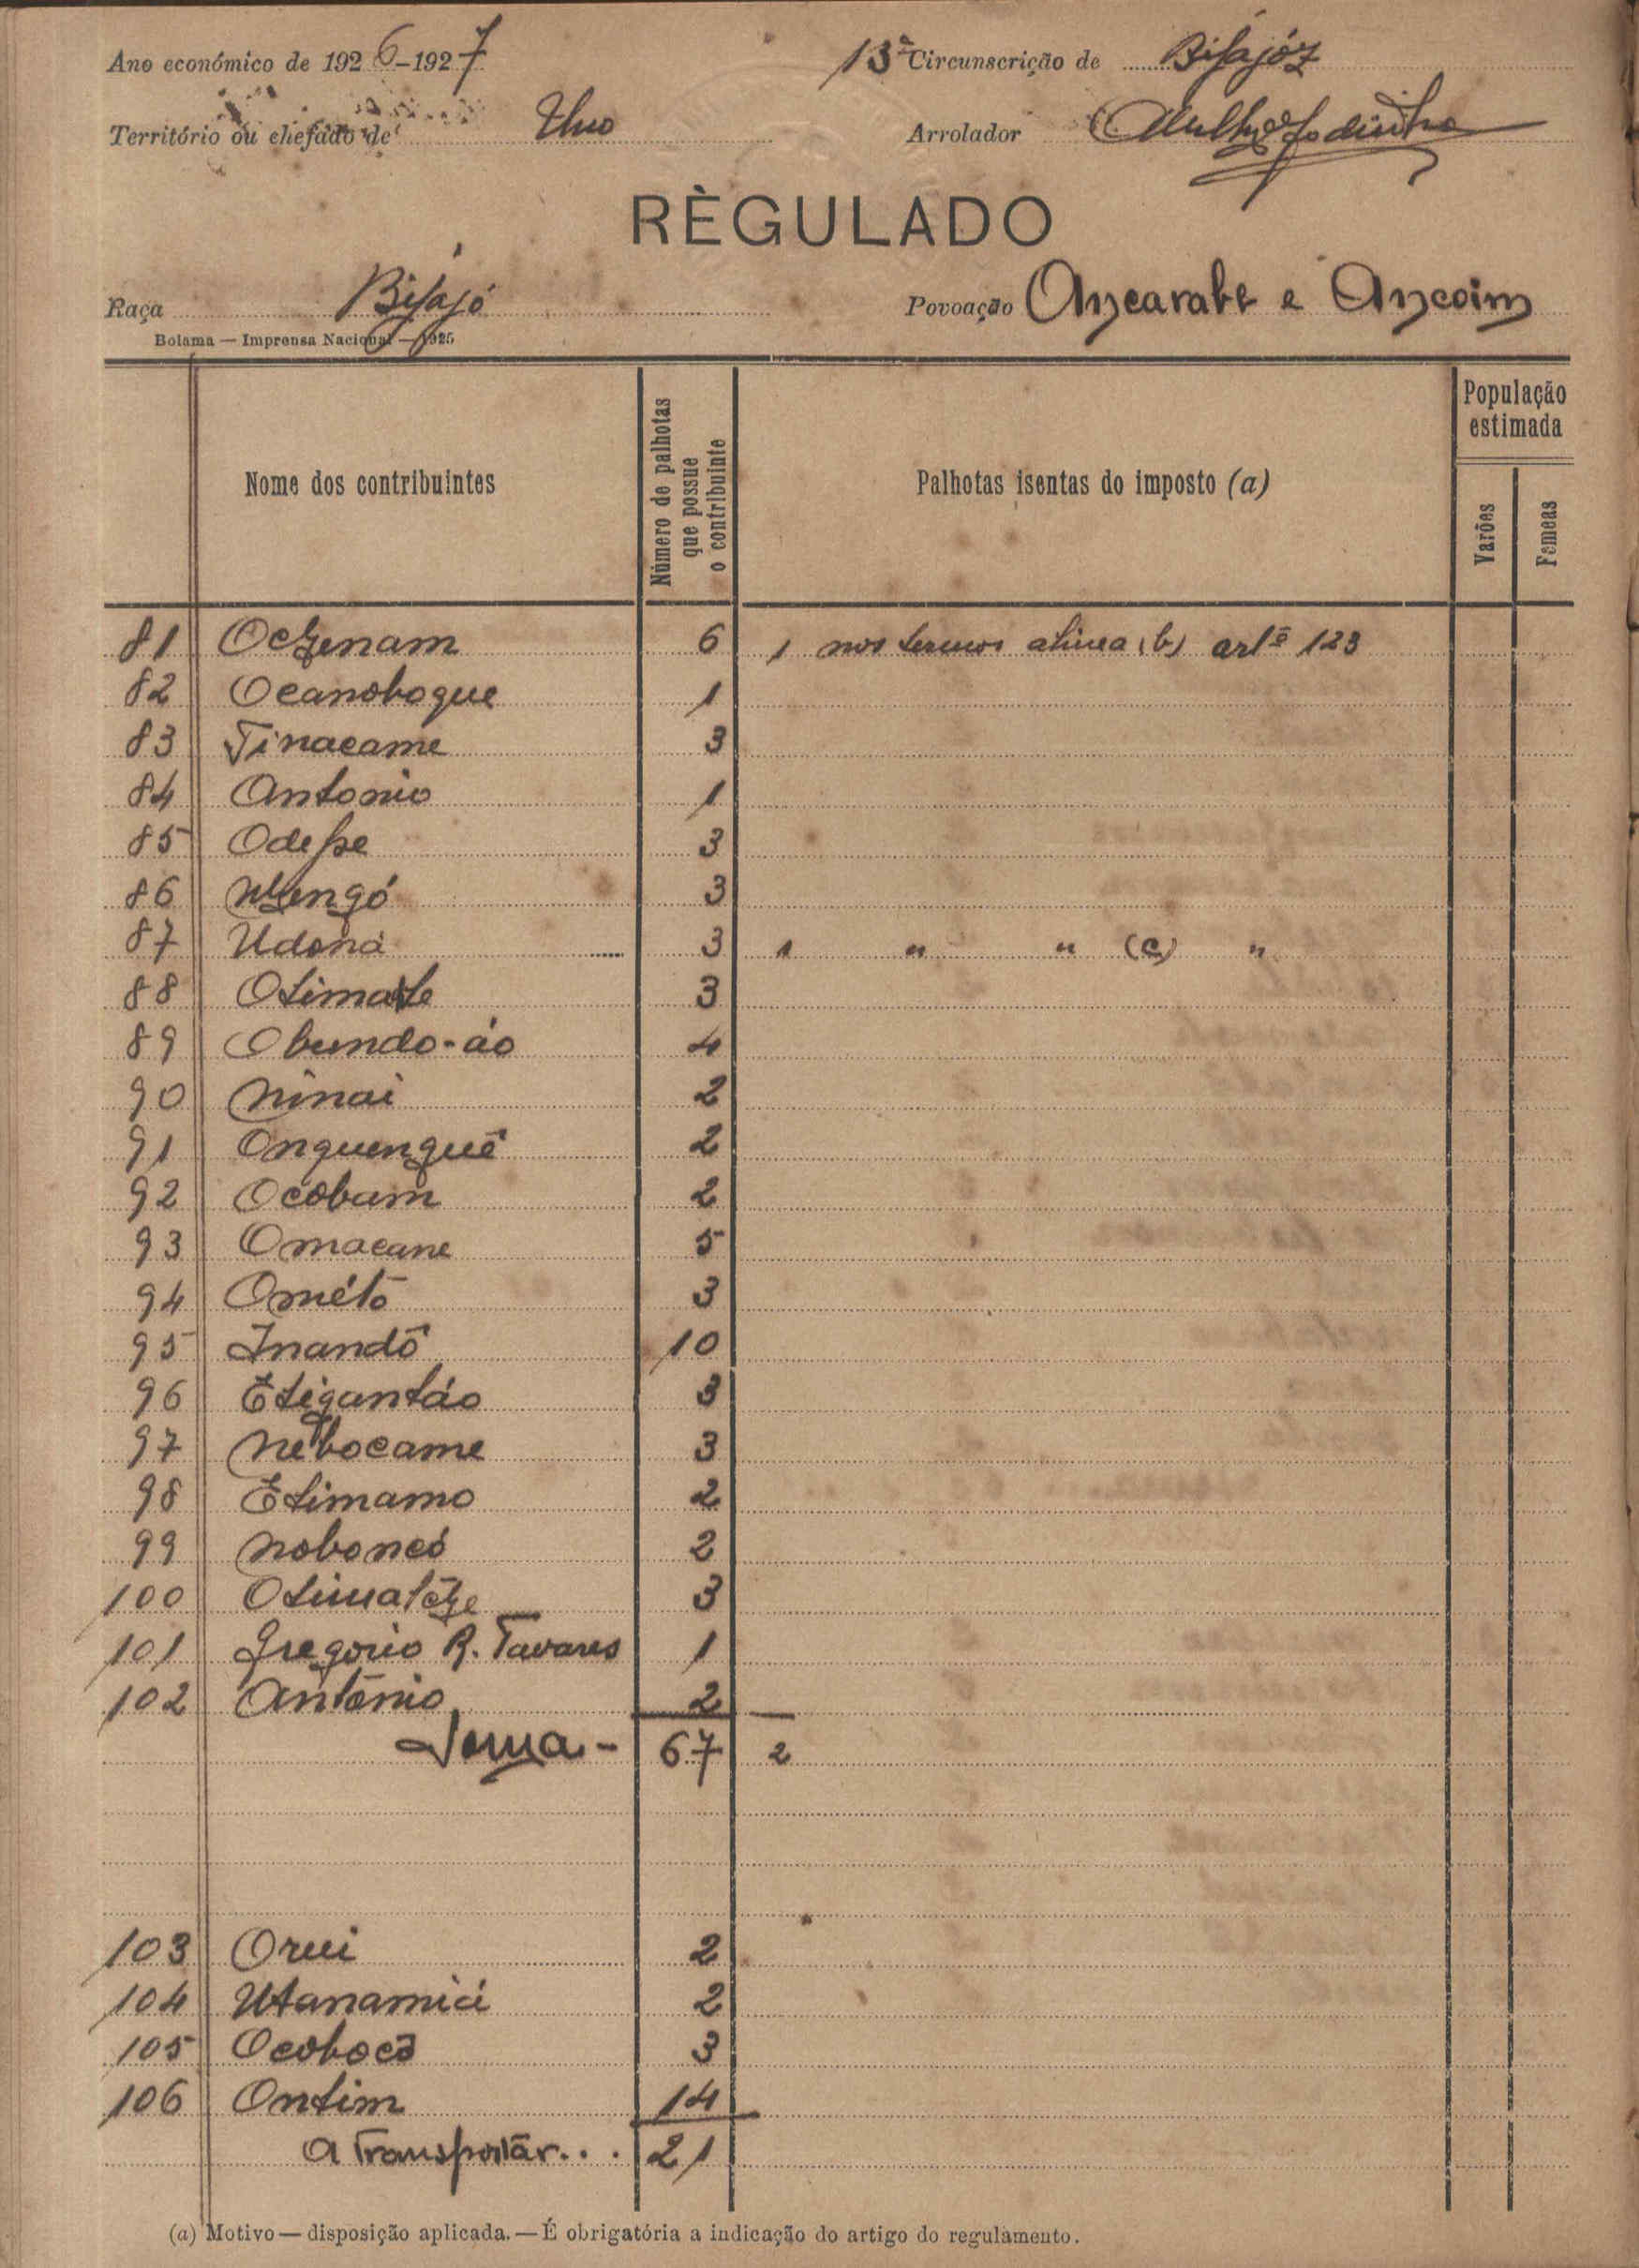 Ano económico de 1926-1927 13ª Circunscrição de Bijajóz
Território ou chefado de Uno Arrolador
RÈGULADO
Raça Bijajó Povoação Ancarabe e Ancoim
Bolama — Imprensa Nacional — 1925
Nome dos contribuintes Número de palhotas que possue o contribuinte Palhotas isentas do imposto (a) População estimada
Varões Femeas
81 6 1 nos termos alinea (b) artº 123
82 Ocanoboque 1
83 Tinacame 3
84 Antonio 1
85 Odepe 3
86 3
87 Udoná 3 1 " " (c) "
88 3
89 Obundo-áo 4
90 Ninai 2
91 Onquenguê 2
92 Ocobam 2
93 Omacane 5
94 Ométo 3
95 Inandô 10
96 Etigantáo 3
97 Nebocame 3
98 Etimamo 2
99 Noboncó 2
100 3
101 Gregorio R. Tavares 1
102 António 2
Soma - 67 2
103 Orui 2
104 Utanamici 2
105 Ocobocó 3
106 Ontim 14
A Transportár... 21
(a) Motivo — disposição aplicada. — É obrigatória a indicação do artigo do regulamento.